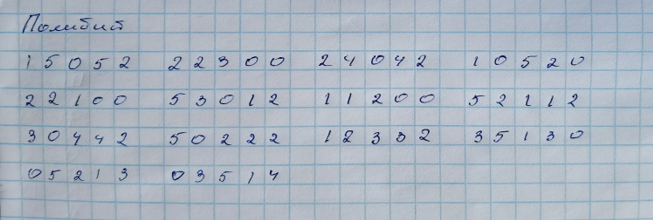 Полибий
15052 22300 24042 10520
22100 53012 11200 52112
30442 50222 12332 35130
05213 03514